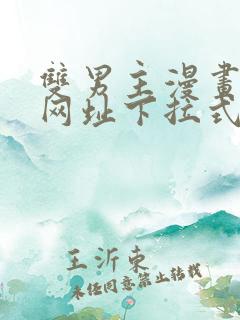 雙男主漫畫
网址下拉式
王沂東
未经同意禁止转载